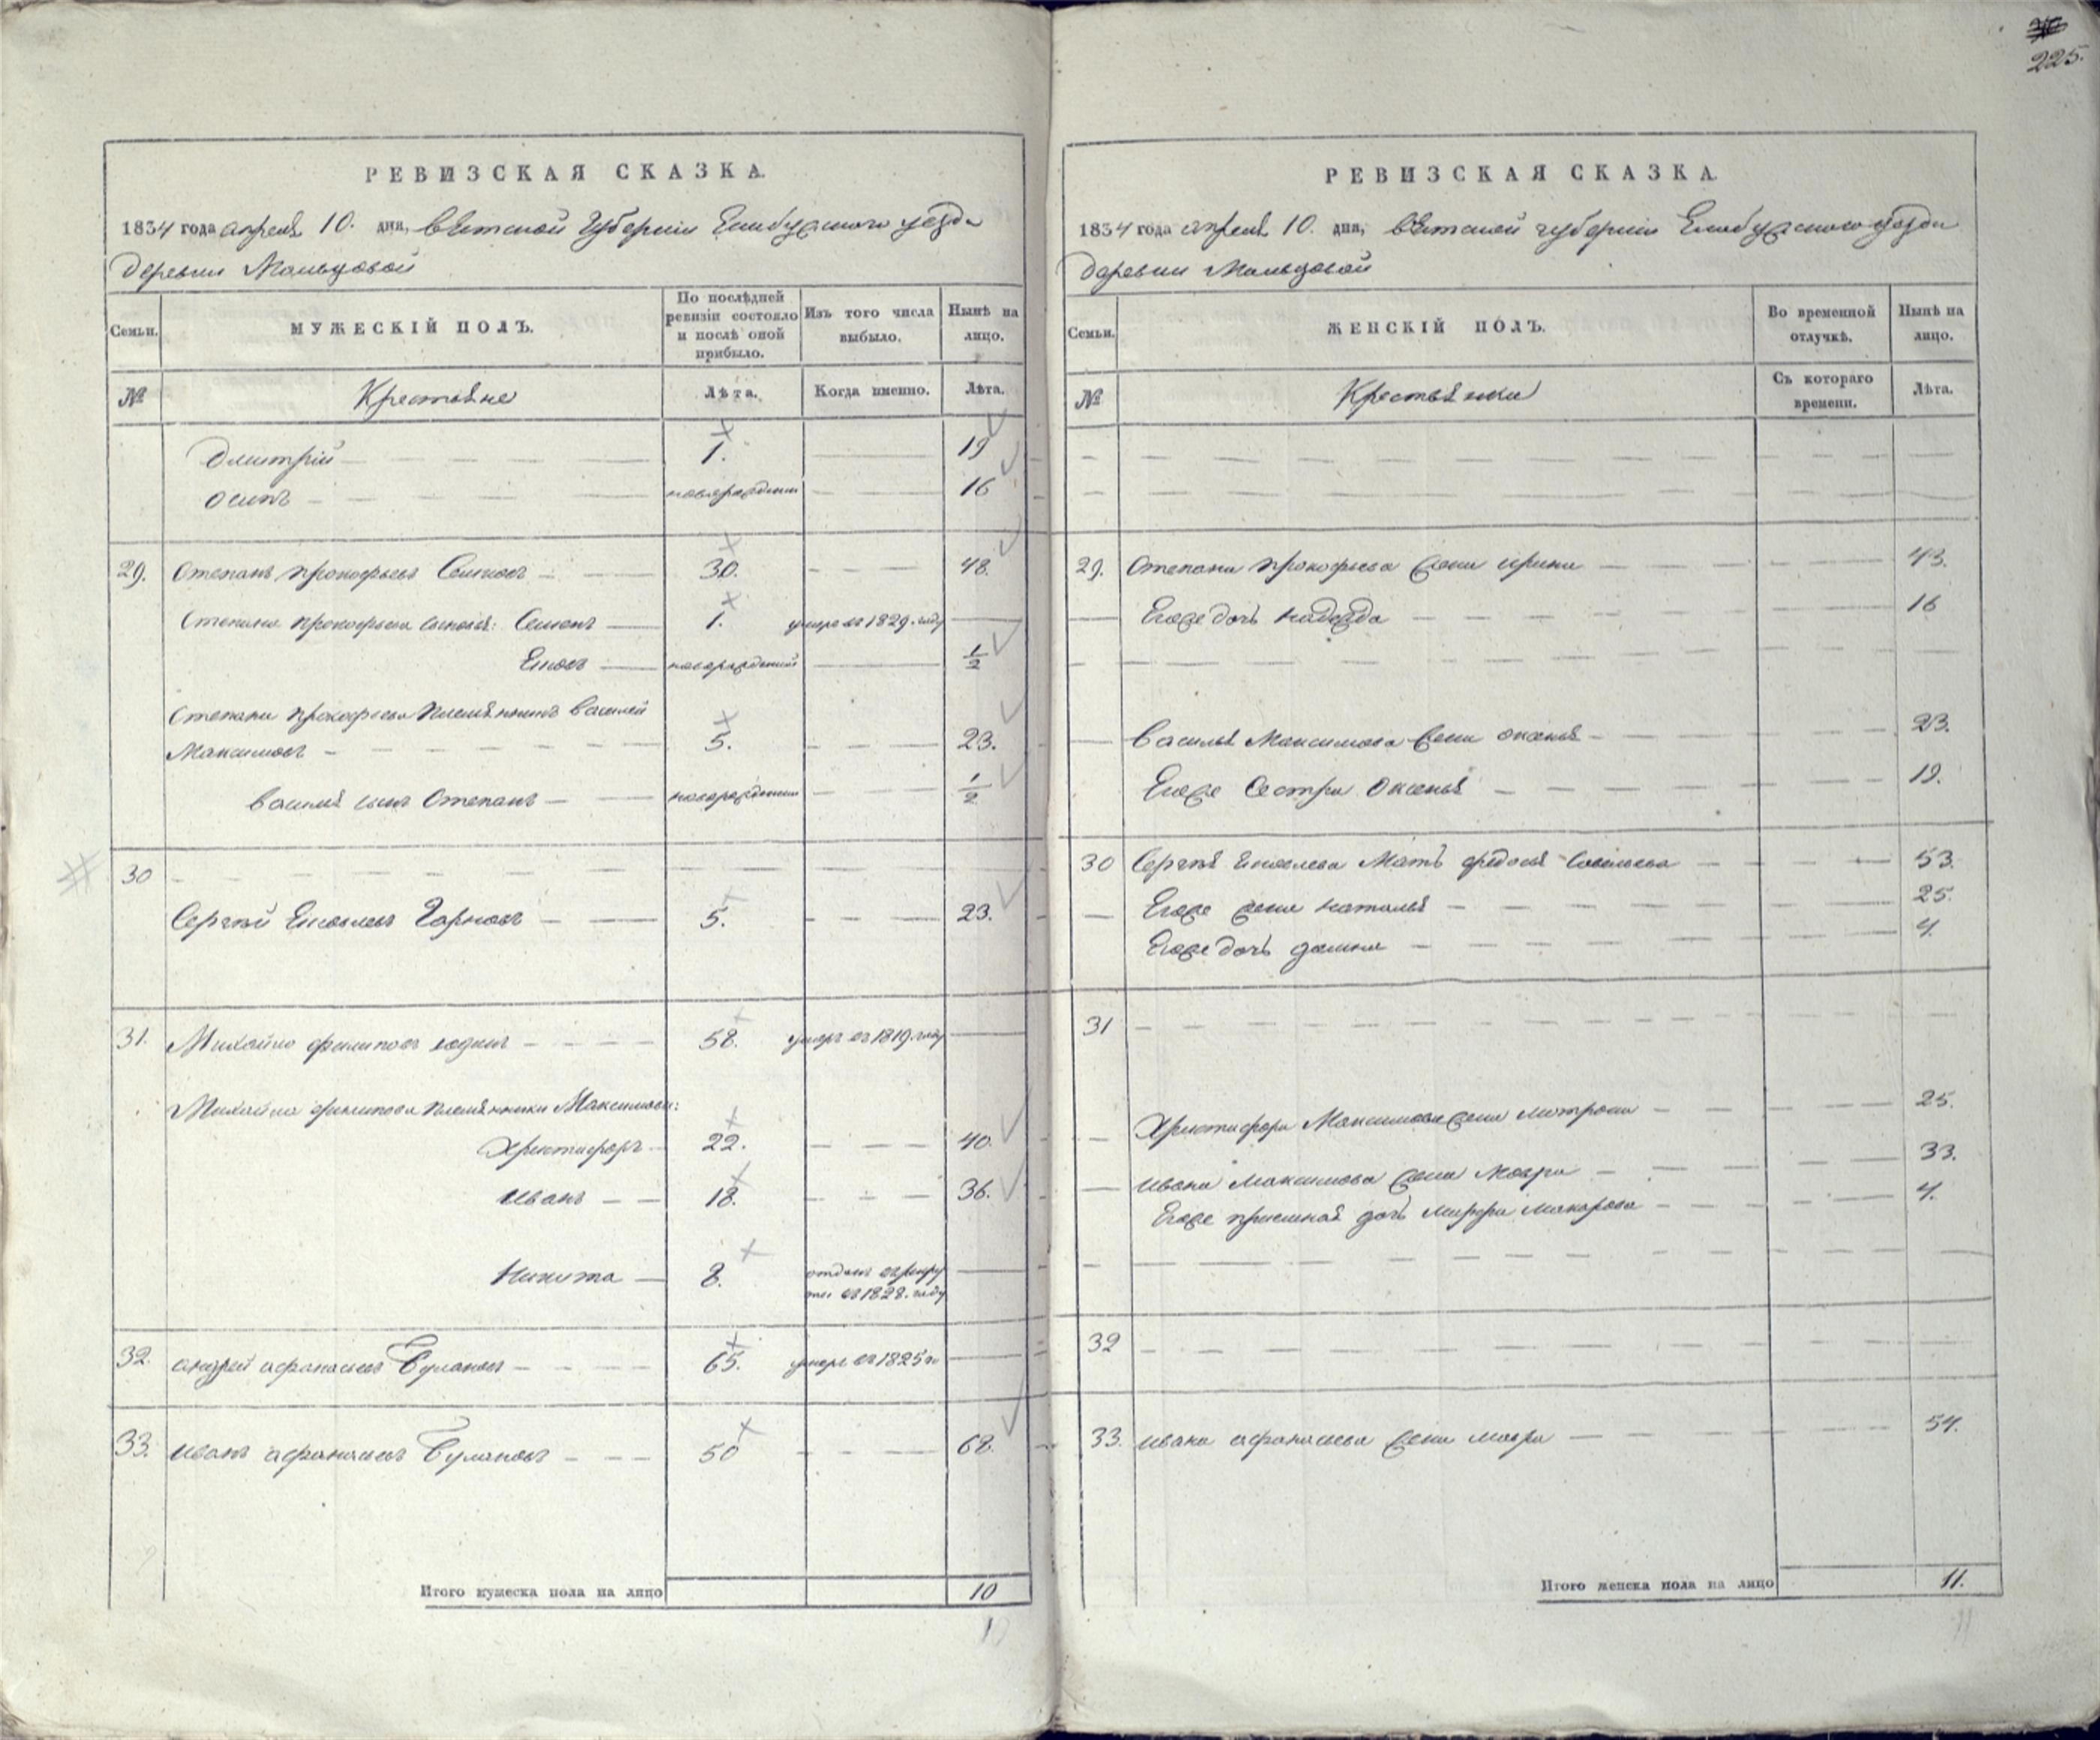 225.
РЕВИЗСКАЯ СКАЗКА.
1834 года апреля 10. дня, Вятской Губернии Елабужского уезда
деревни Мальцовой
Семьи.
МУЖЕСКІЙ ПОЛЪ.
По послѣдней ревизіи состояло и послѣ оной прибыло.
Изъ того числа выбыло.
Нынѣ на лицо.
№
Крестьяне
Лѣта.
Когда именно.
Лѣта.
Дмитрій 1. 19
Осипъ новорожденный 16
29. Степанъ Прокофьевъ 30. 48.
Степана Прокофьева сыновья: Семенъ 1. умеръ въ 1829. году
новорожденный 1/2
Степана Прокофьева племянникъ Василей
Максимовъ 5. 23.
Василья сынъ Степанъ новорожденный 1/2
30
Сергѣй Яковлевъ 5. 23.
31. Михайло Филиповъ 58. умеръ въ 1819. году
Михайла Филипова племянники Максимовы:
Христифоръ 22. 40.
Иванъ 18. 36.
Никита 8. отданъ въ рекру
ты въ 1828. году
32. Андрей Афанасьевъ Булановъ 65. умеръ въ 1825 г
33. Иванъ Афанасьевъ Булановъ 50 68.
Итого мужеска пола на лицо 10
10
РЕВИЗСКАЯ СКАЗКА.
1834 года апреля 10. дня, Вятской губернии Елабужского уезда
деревни Мальцовой
Семьи.
ЖЕНСКІЙ ПОЛЪ.
Во временной отлучкѣ.
Нынѣ на лицо.
№
Крестьянки
Съ котораго времени.
Лѣта.
29. Степана Прокофьева жена Ирина 43.
Егоже дочь Надежда 16
Василья Максимова жена 23.
Егоже сестра Оксинья 19.
30 Сергѣя Яковлева мать Федосья Савельева 53.
Егоже жена Наталья 25.
Егоже дочь Домна 4.
31
Христифора Максимова жена Матрона 25.
Ивана Максимова жена Мавра 33.
Егоже приемная дочь Макарова 4.
32
33. Ивана Афанасьева жена Мавра 54.
Итого женска пола на лицо 11.
11